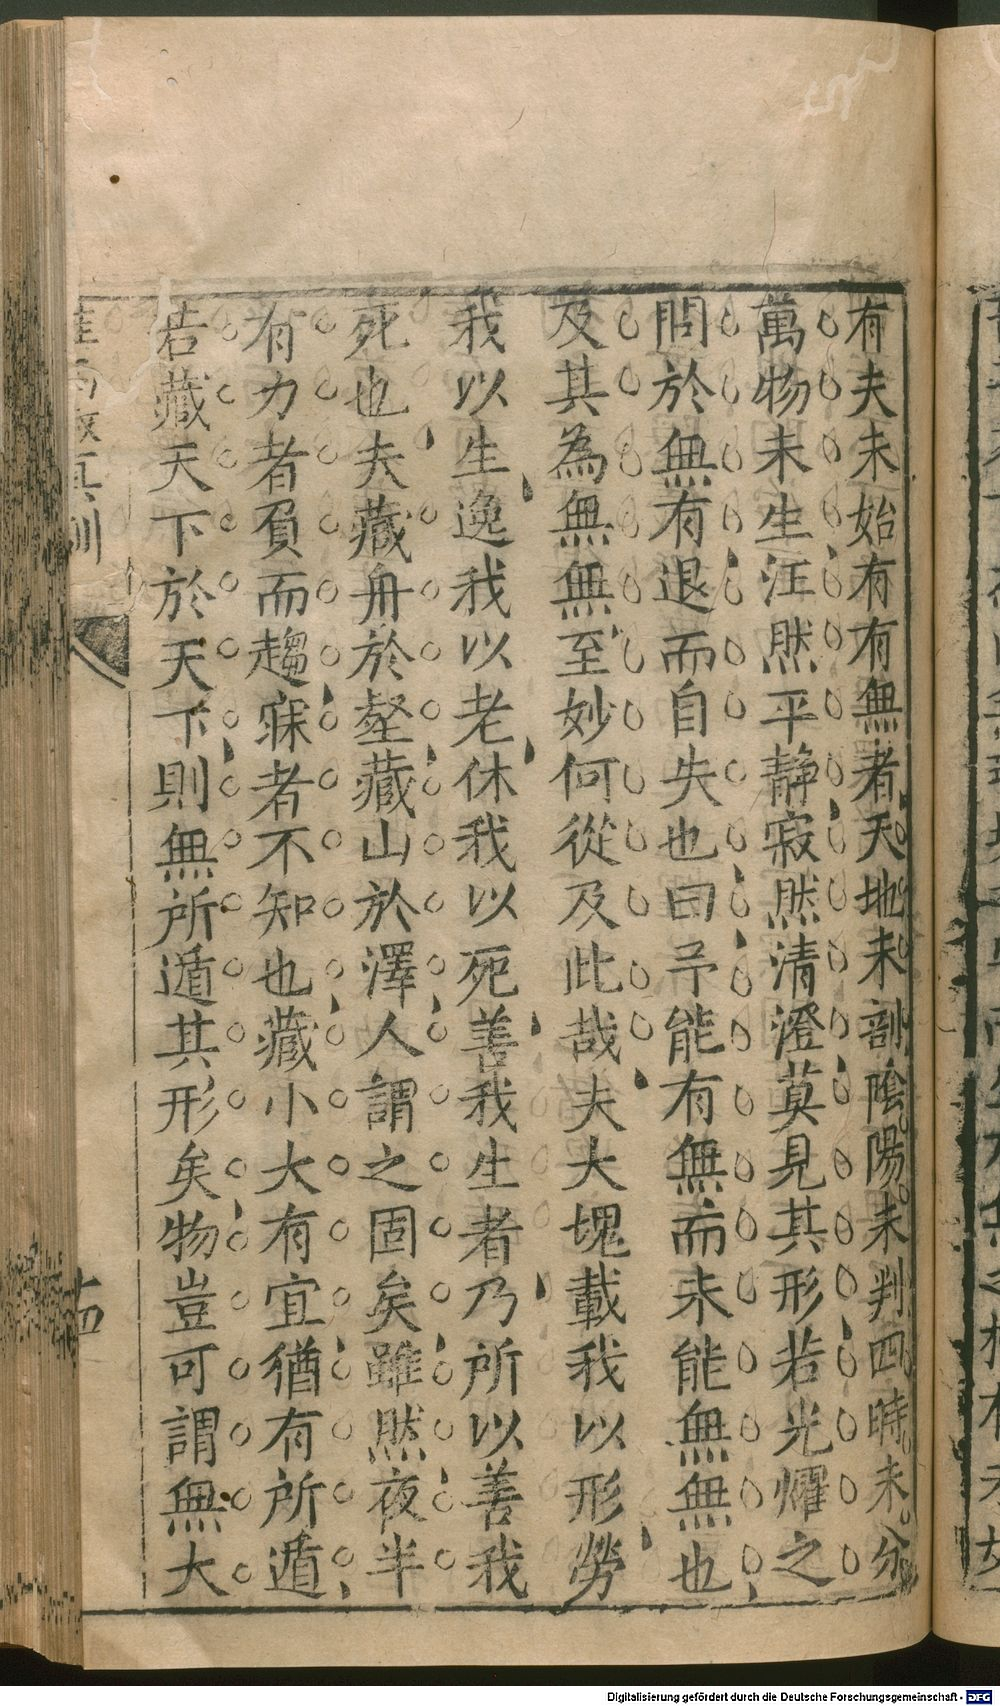 有夫未始有有無者天地未剖陰陽未判四時未分
萬物未生汪然平靜寂然清澄莫見其形若光燿之
問於無有退而自失也曰予能有無而未能無無也
及其為無無至妙何從及此哉夫大塊載我以形勞
我以生逸我以老休我以死善我生者乃所以善我
死也夫藏舟於壑藏山於澤人謂之固矣雖然夜半
有力者負而趨寐者不知也藏小大有宜猶有所遁
若藏天下於天下則無所遁其形矣物豈可謂無大
真訓
十四
Digitalisierung gefördert durch die Deutsche Forschungsgemeinschaft - DFG